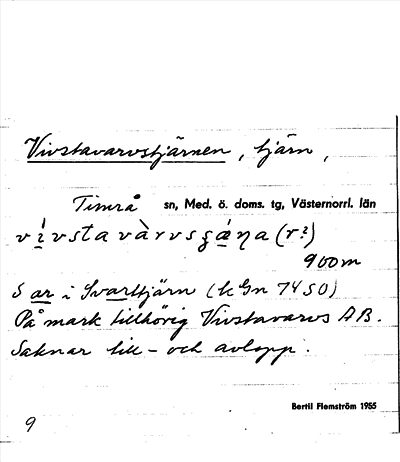 Vivstavarvstjärnen, tjärn,
Timrå sn, Med. ö. doms. tg, Västernorrl. län
(r?)
900 m
S ar i Svarttjärn (k Gn 7450)
På mark tillhörig Vivstavarvs AB.
Saknar till- och avlopp.
Bertil Flemström 1955
9